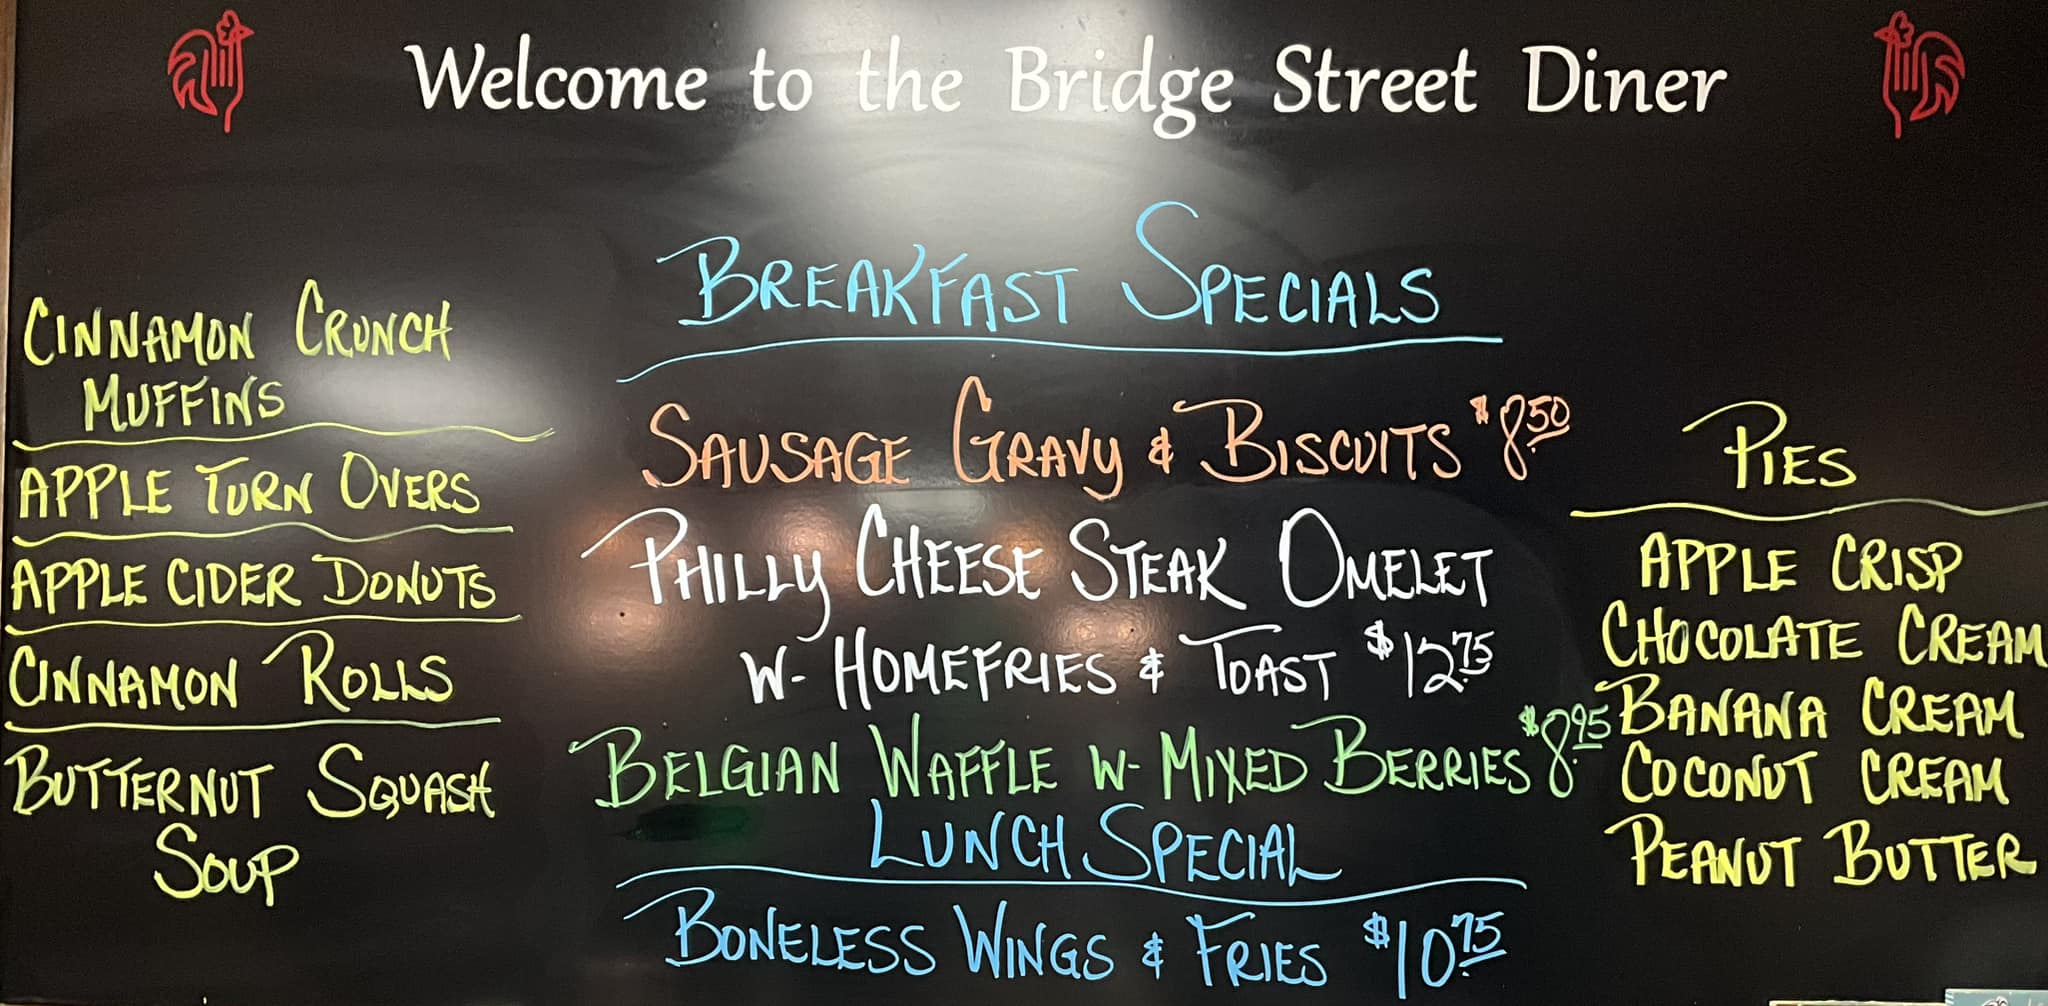 Welcome to the Bridge Street Diner
CINNAMON CRUNCH
MUFFINS
APPLE TURN OVERS
APPLE CIDER DONUTS
CINNAMON ROLLS
BUTTERNUT SQUASH
SOUP
BREAKFAST SPECIALS
SAUSAGE GRAVY & BISCUITS $8.50
PHILLY CHEESE STEAK OMELET
W- HOMEFRIES & TOAST $12.75
BELGIAN WAFFLE W- MIXED BERRIES $8.95
LUNCH SPECIAL
BONELESS WINGS & FRIES $10.75
PIES
APPLE CRISP
CHOCOLATE CREAM
BANANA CREAM
COCONUT CREAM
PEANUT BUTTER